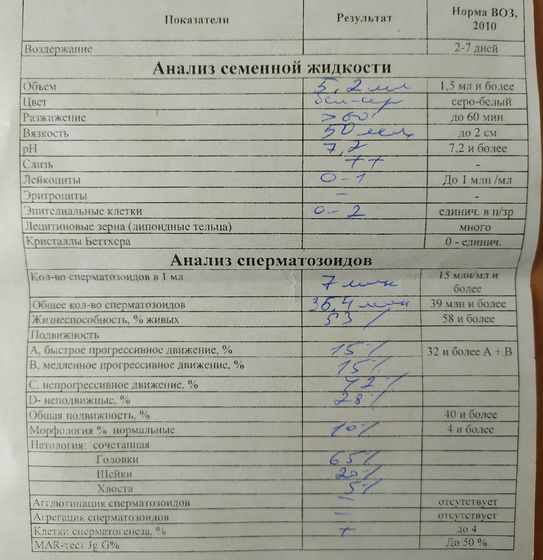 Показатели Результат Норма ВОЗ, 2010
Воздержание 2-7 дней
Анализ семенной жидкости
Объем 5,2 мл 1,5 мл и более
Цвет бел-сер серо-белый
Разжижение >60' до 60 мин
Вязкость 50 мм до 2 см
pH 7,2 7,2 и более
Слизь ++ -
Лейкоциты 0-1 До 1 млн /мл
Эритроциты – -
Эпителиальные клетки 0-2 единич. в п/зр
Лецитиновые зерна (липоидные тельца) много
Кристаллы Беттхера 0 - единич.
Анализ сперматозоидов
Кол-во сперматозоидов в 1 мл 7 млн 15 млн/мл и более
Общее кол-во сперматозоидов 36,4 млн 39 млн и более
Жизнеспособность, % живых 53% 58 и более
Подвижность
А, быстрое прогрессивное движение, % 15% 32 и более А + В
В, медленное прогрессивное движение, % 15%
С. непрогрессивное движение, % 42%
D- неподвижные, % 28%
Общая подвижность, % 40 и более
Морфология % нормальные 10% 4 и более
Патология: сочетанная
Головки 65%
Шейки 20%
Хвоста 5%
Агглютинация сперматозоидов – отсутствует
Агрегация сперматозоидов – отсутствует
Клетки сперматогенеза, % + до 4
MAR-тест Jg G% До 50 %